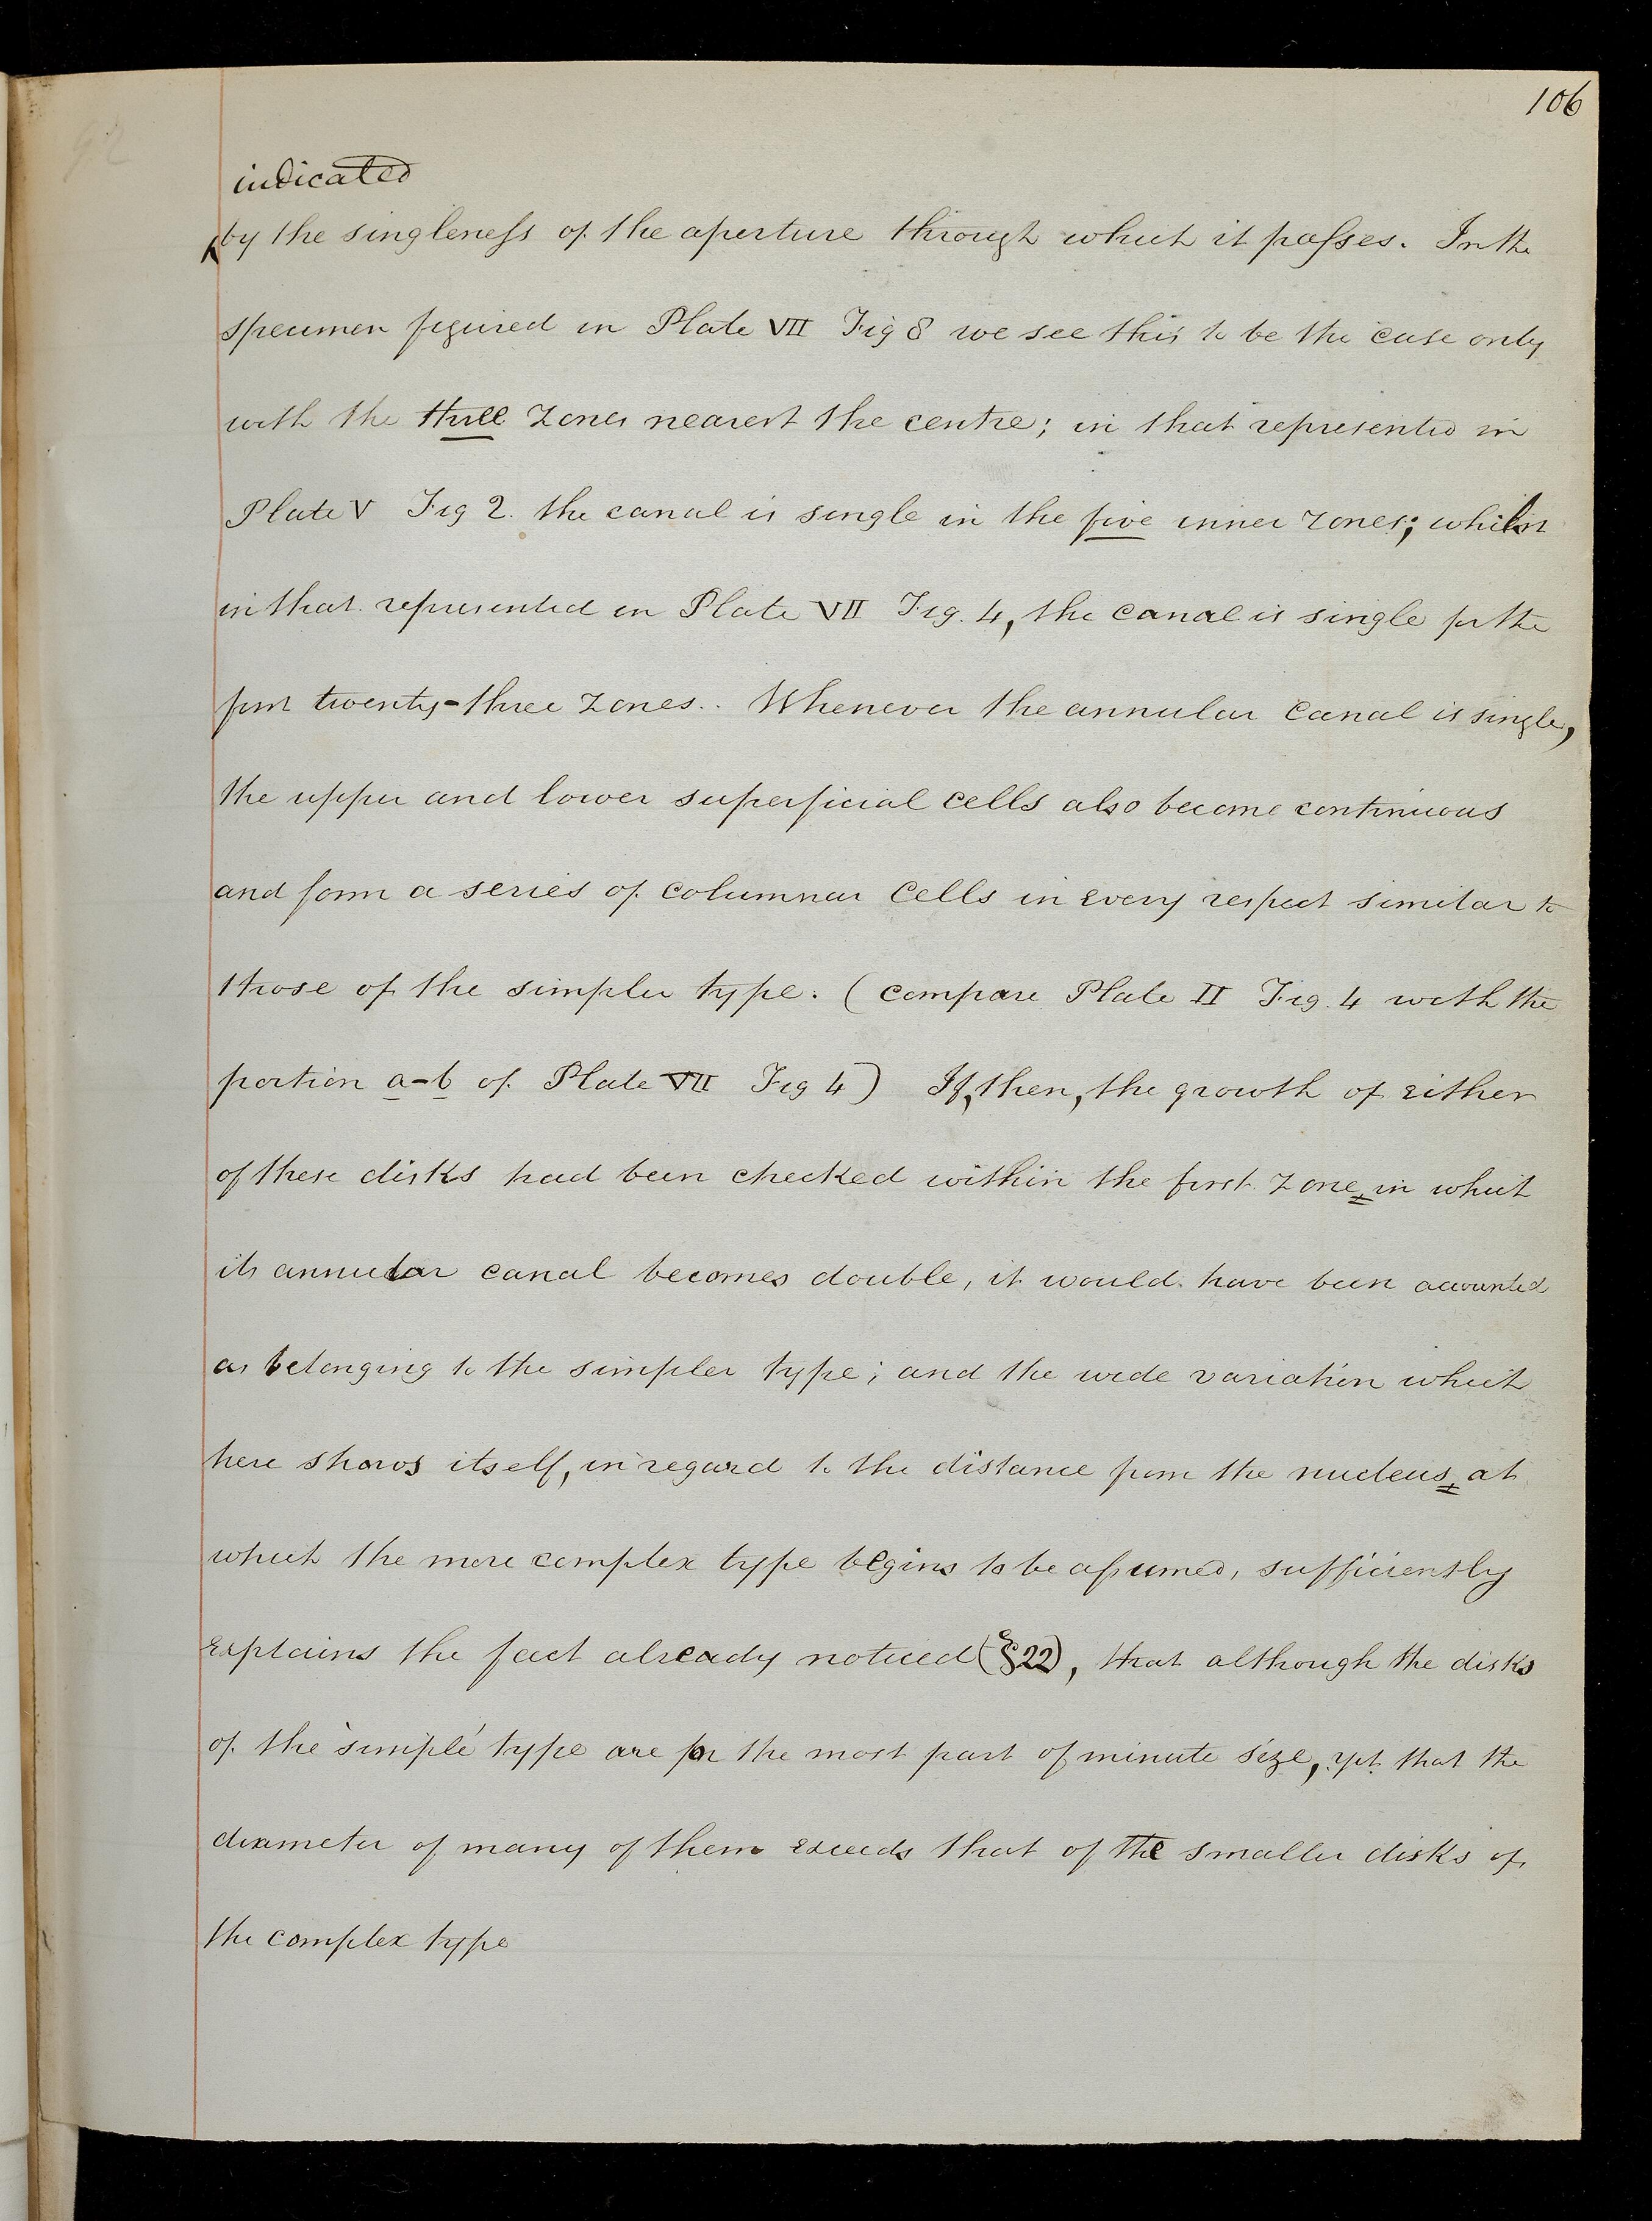 106
92
indicated
by the singleness of the aperture through which it passes. In the
specimen figured in Plate VII Fig 8 we see this to be the case only
with the three zones nearest the centre; in that represented in
Plate V Fig 2. the canal is single in the five inner zones; whilst
in that represented in Plate VII Fig. 4, the canal is single for the
first twenty-three zones.. Whenever the annular canal is single,
the upper and lower superficial cells also become continuous
and form a series of columnar cells in every respect similar to
those of the simpler type. (compare Plate II Fig. 4 with the
portion a-b of Plate VII Fig 4) If, then, the growth of either
of these disks had been checked within the first zone in which
its annular canal becomes double, it would have been accounted
as belonging to the simpler type; and the wide variation which
here shows itself, in regard to the distance from the nucleus at
which the more complex type begins to be assumed, sufficiently
explains the fact already noticed (§22), that although the disks
of the 'simple' type are for the most part of minute size, yet that the
diameter of many of them exceeds that of the smaller disks of
the complex type